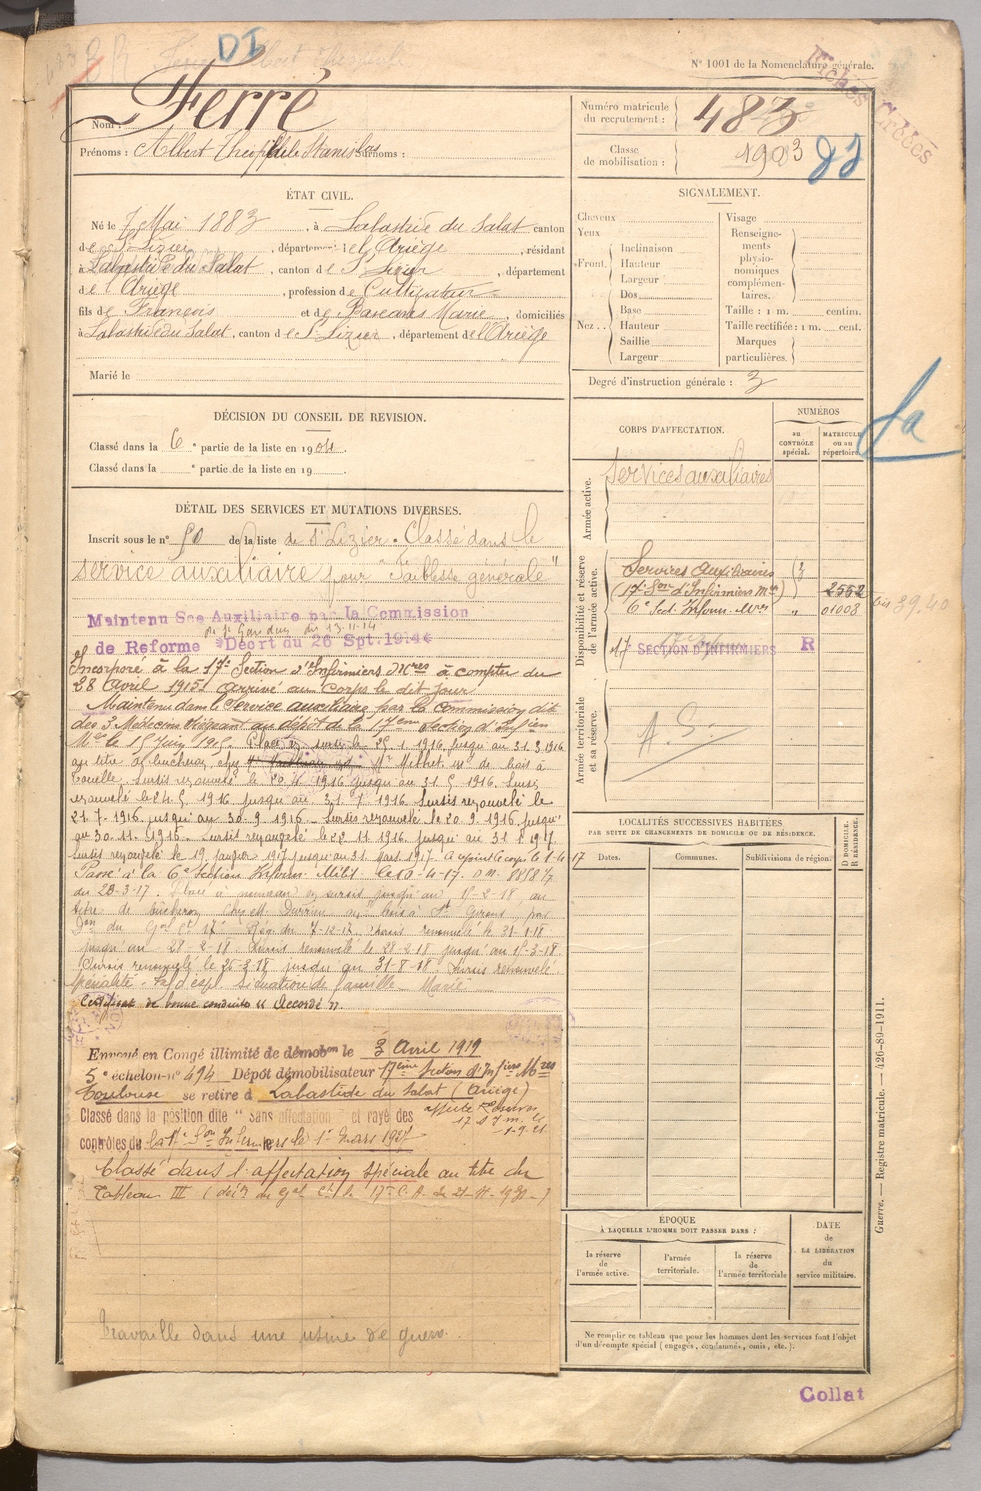 DI
N° 1001 de la Nomenclature générale.
Fiches Créées
Nom : Ferré
Prénoms : Albert Théophile Stanislas Surnoms :
Numéro matricule du recrutement : 483
Classe de mobilisation : 1903
ÉTAT CIVIL.
Né le 7 Mai 1883, à Labastide du Salat canton
de St Lizier, département de l'Ariège, résidant
à Labastide du Salat, canton de St Lizier, département
de l'Ariège, profession de Cultivateur
fils de François et de Marie, domiciliés
à Labastide du Salat, canton de St Lizier, département de l'Ariège
Marié le
SIGNALEMENT.
Cheveux
Yeux
Front.
Inclinaison
Hauteur
Largeur
Nez..
Dos
Base
Hauteur
Saillie
Largeur
Visage
Renseignements physionomiques complémentaires.
Taille : 1 m. centim.
Taille rectifiée : 1 m. cent.
Marques particulières.
Degré d'instruction générale : 3
DÉCISION DU CONSEIL DE REVISION.
Classé dans la 6e partie de la liste en 1904.
Classé dans la e partie de la liste en 19
DÉTAIL DES SERVICES ET MUTATIONS DIVERSES.
Inscrit sous le n° 50 de la liste de St Lizier. Classé dans le
service auxiliaire pour "Faiblesse générale"
Maintenu Sce Auxiliaire par la Commission
de Réforme de St Gaudens du 13.11.14
Décrt du 26 Spt. 1914
Incorporé à la 17e Section d'Infirmiers Mres à compter du
28 Avril 1915 arrivé au corps le dit jour
Maintenu dans le Service auxiliaire par la Commission dite
des 3 Médecins siégeant au dépôt de la 17ème Section d'Infiers
Mres le 15 Juin 1915. Placé en sursis le 25.1.1916 jusqu'au 31.3.1916
au titre de bucheron, chez Mr
Sursis renouvelé le 20.4.1916 jusqu'au 31.5.1916. Sursis
renouvelé le 24.5.1916 jusqu'au 31.7.1916. Sursis renouvelé le
21.7.1916 jusqu'au 30.9.1916. Sursis renouvelé le 20.9.1916 jusqu'
au 30.11.1916. Sursis renouvelé le 22.11.1916 jusqu'au 31.1.1917.
Sursis renouvelé le 19 Janvier 1917 jusqu'au 31 Mars 1917. a rejoint le corps le 1-4-17
Passé à la 6e Section Infirm. Milit.
du 28-3-17. Placé à nouveau en sursis jusqu'au 15-2-18, au
titre de bûcheron chez Mr Durrieu, à St Girons, par
Don du Gal Ct 17e Rég. du 7-12-17. Sursis renouvelé le 31-1-18
jusqu'au 28-2-18. Sursis renouvelé le 28-2-18 jusqu'au 15-3-18
Sursis renouvelé le 26-3-18 jusqu'au 31-8-18. Sursis renouvelé
Situation de famille Marié
Certificat de bonne conduite "Accordé".
Envoyé en Congé illimité de démobon le 3 Avril 1919
5e échelon n° 494 Dépôt démobilisateur 17ème Section d'Infiers Mres
Toulouse se retire à Labastide du Salat (Ariège)
Classé dans la position dite "sans affectation" et rayé des
contrôles du la 17e Son Infirmiers le 1er Mars 1927
1-9-21
Classé dans l'affectation spéciale au titre du
Tableau III
Travaille dans une usine de guerre.
CORPS D'AFFECTATION.
NUMÉROS
au CONTRÔLE spécial.
MATRICULE ou au répertoire.
Armée active.
Services auxiliaires
Disponibilité et réserve de l'armée active.
Services Auxiliaires
(17e Son d'Infirmiers Mres) 2552
6e Sect. Infirm. Mres " 01008
17 SECTION D'INFIRMIERS R
Armée territoriale et sa réserve.
A.S.
LOCALITÉS SUCCESSIVES HABITÉES
PAR SUITE DE CHANGEMENTS DE DOMICILE OU DE RÉSIDENCE.
Dates.
Communes.
Subdivisions de région.
D DOMICILE.
R RÉSIDENCE.
ÉPOQUE
À LAQUELLE L'HOMME DOIT PASSER DANS :
la réserve de l'armée active.
l'armée territoriale.
la réserve de l'armée territoriale
DATE de LA LIBÉRATION du service militaire.
Ne remplir ce tableau que pour les hommes dont les services font l'objet
d'un décompte spécial (engagés, condamnés, omis, etc.).
Guerre. — Registre matricule. — 426-89-1911.
Collat